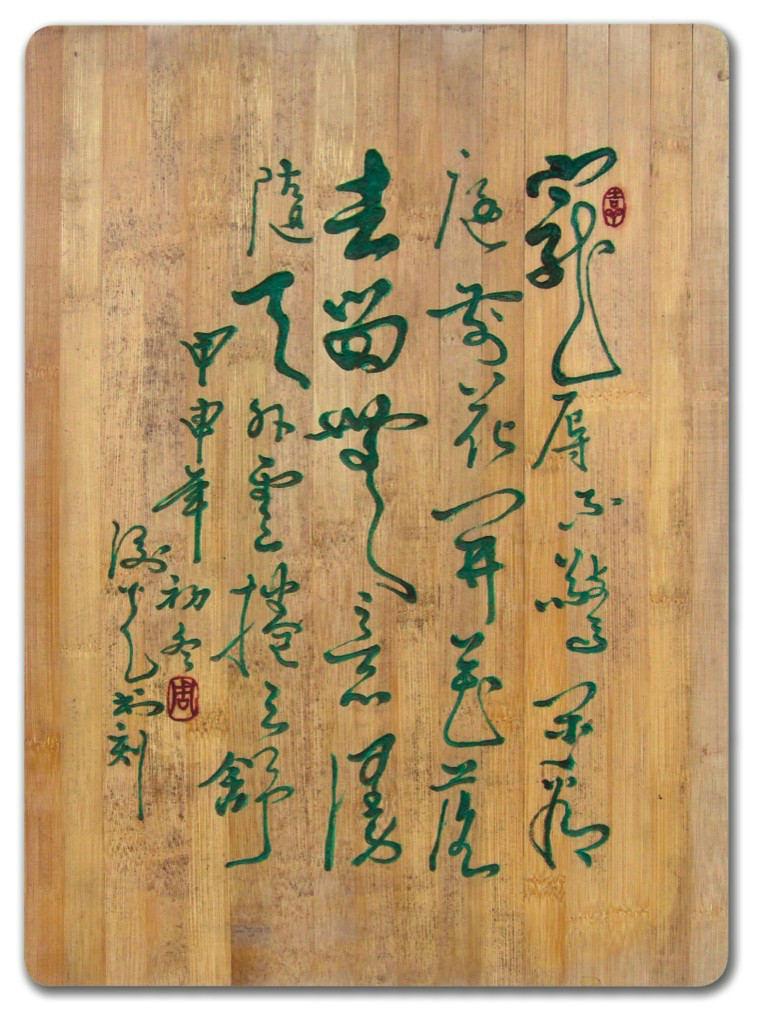 寵辱不驚閑看
庭前花開花落
去留無意漫
隨天外雲捲云舒
甲申年初冬
书刻
周